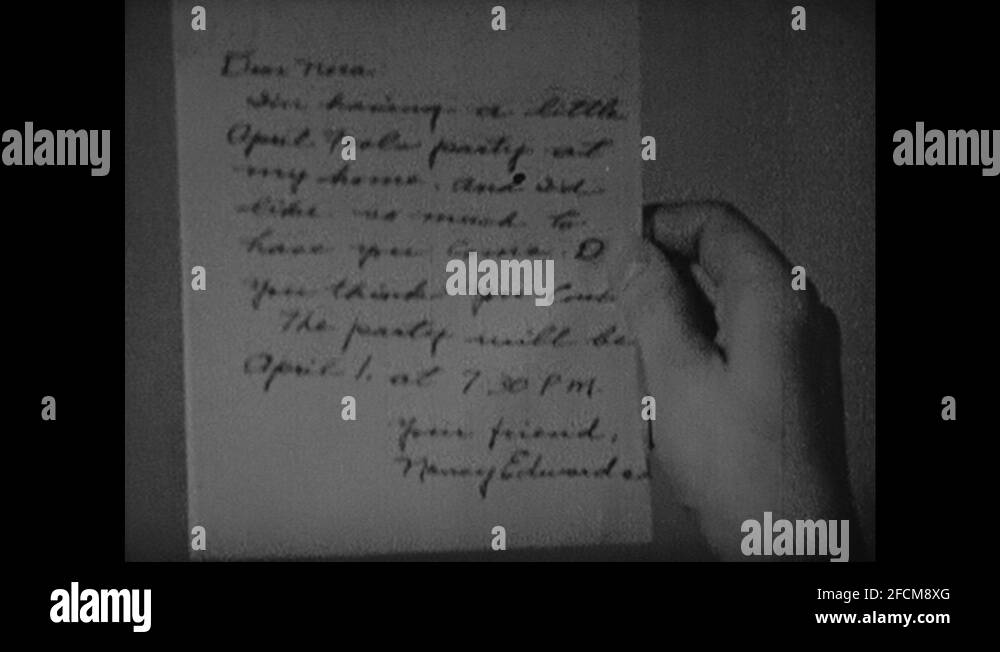 Dear Nora.
I'm having a little
April Fools party at
my home. And I'd
like so much to
have you come. D
You think you
The party will be
April 1. at 7 30 P.M.
Your friend,
Nancy Edwards
a a a
alamy alamy
a a
a alamy a
a a a a
a a alamy
alamy
Image ID: 2FCM8XG
www.alamy.com